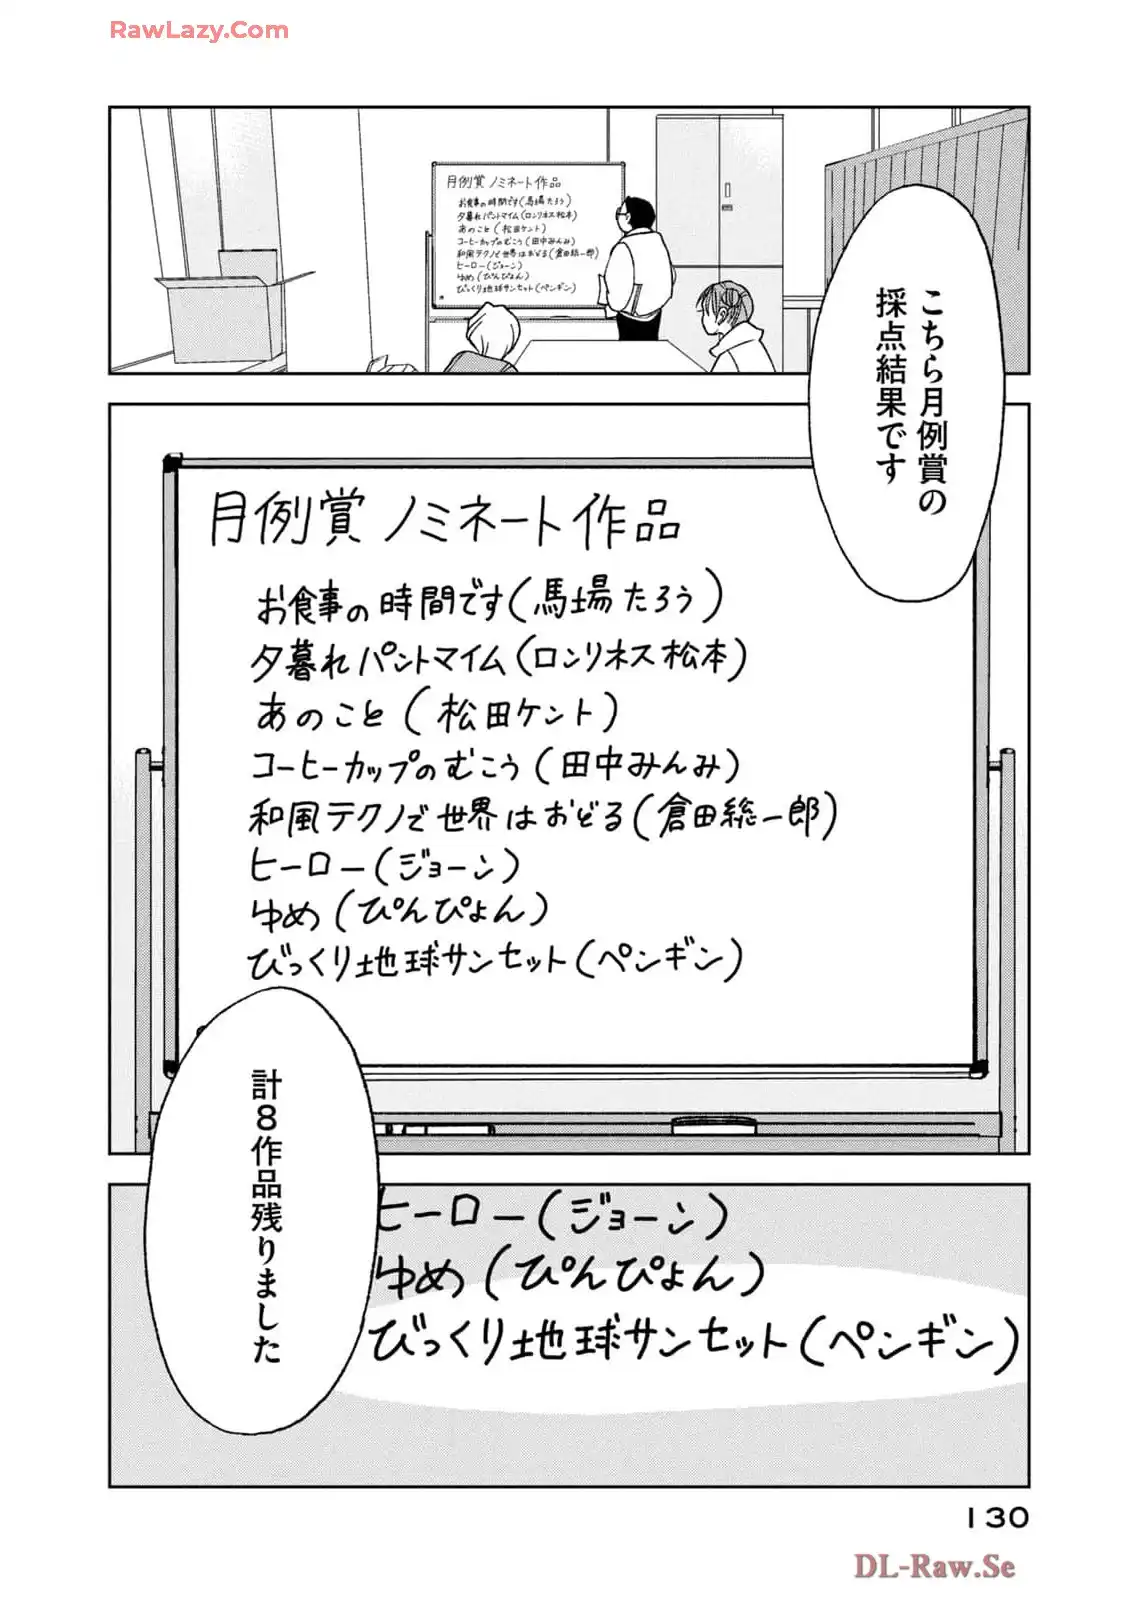 RawLazy.Com
こちら月例賞の
採点結果です
月例賞 ノミネート作品
お食事の時間です(馬場たろう)
夕暮れパントマイム(ロンリネス松本)
あのこと(松田ケント)
コーヒーカップのむこう(田中みんみ)
和風テクノで世界はおどる(倉田総一郎)
ヒーロー(ジョーン)
ゆめ(ぴんぴょん)
びっくり地球サンセット(ペンギン)
月例賞 ノミネート作品
お食事の時間です(馬場たろう)
夕暮れパントマイム(ロンリネス松本)
あのこと(松田ケント)
コーヒーカップのむこう(田中みんみ)
和風テクノで世界はおどる(倉田総一郎)
ヒーロー(ジョーン)
ゆめ(ぴんぴょん)
びっくり地球サンセット(ペンギン)
計8作品残りました
ヒーロー(ジョーン)
ゆめ(ぴんぴょん)
びっくり地球サンセット(ペンギン)
130
DL-Raw.Se